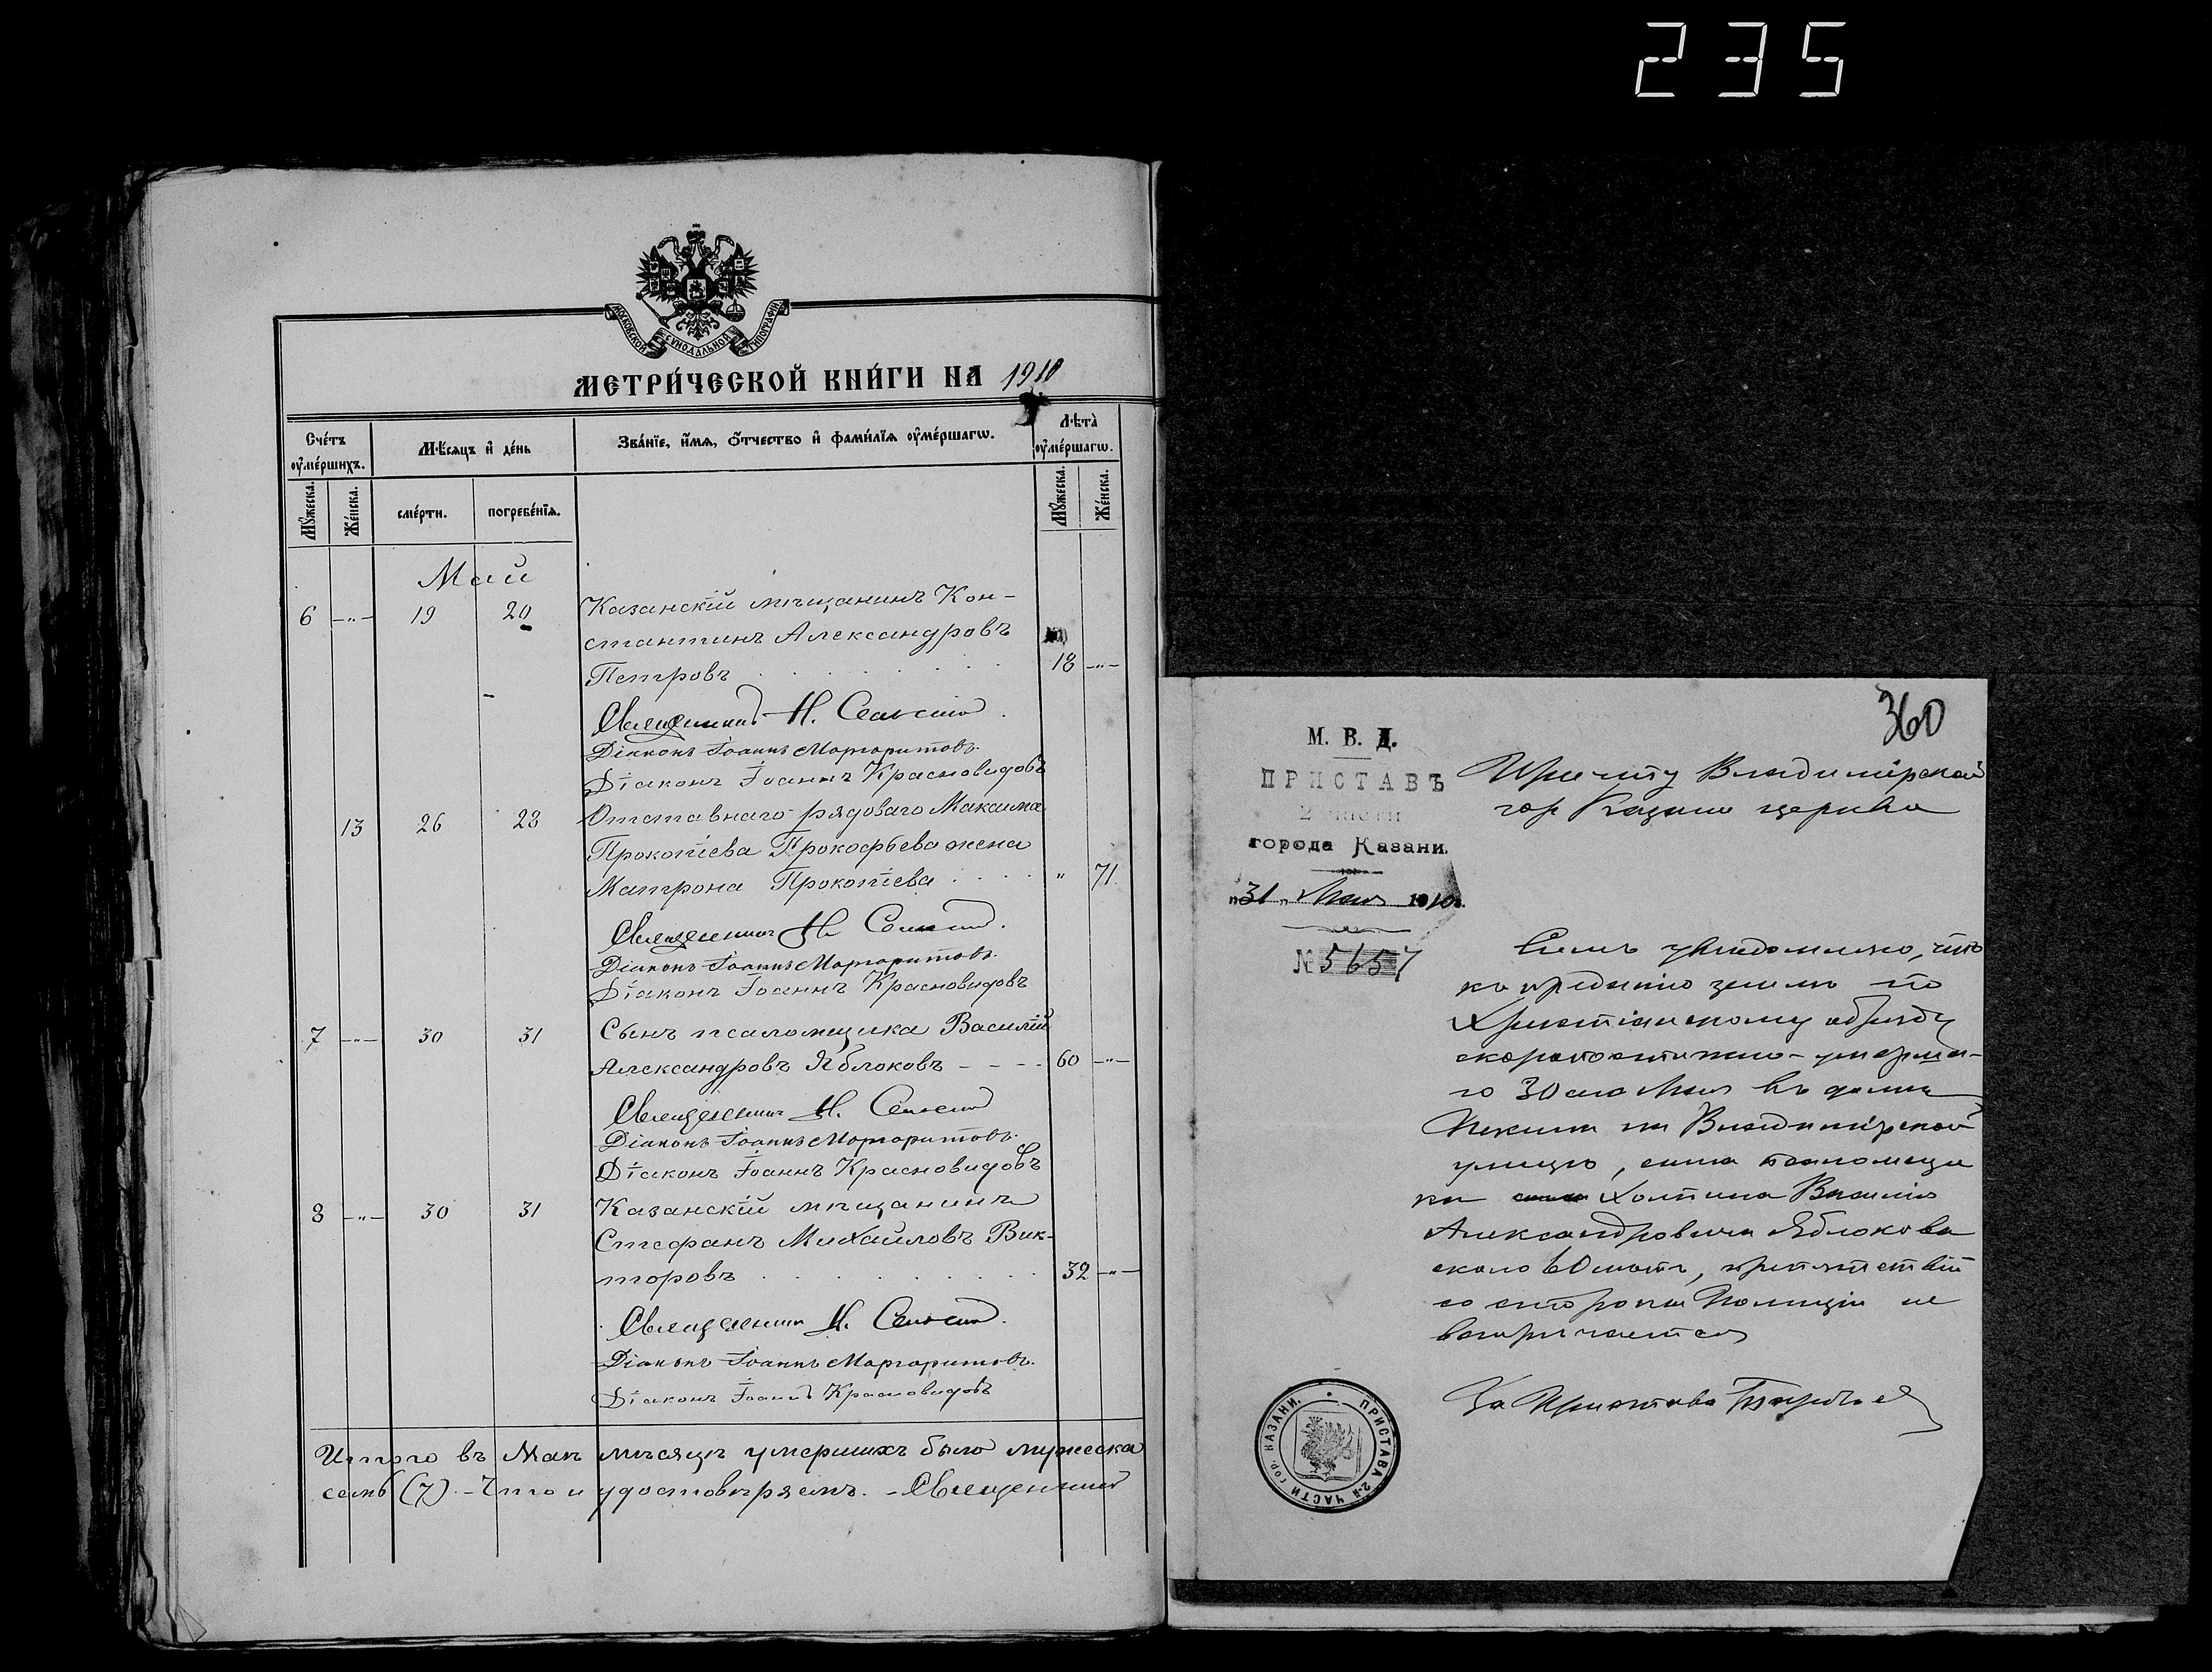 235
МОСКОВСКОЙ СѴНОДАЛЬНОЙ ТИПОГРАФІИ
МЕТРИ́ЧЕСКОЙ КНИ́ГИ НА 1910
Сче́тъ ᲂу҆ме́ршихъ.
Мѣ́сяцъ и҆ де́нь
Зва́нїе, и҆́мѧ, ѻ҆́тчество и҆ фами́лїѧ ᲂу҆ме́ршагѡ.
Лѣ́та ᲂу҆ме́ршагѡ.
Мꙋ́жеска.
Же́нска.
сме́рти.
погребе́нїѧ.
Мꙋ́жеска.
Же́нска.
Май
6 -„- 19 20 Казанскій мѣщанинъ Кон-
стантинъ Александровъ
Петровъ . . . . . . . 18 -„-
Священникъ Н.
Діаконъ Іоаннъ Маргаритовъ.
Діаконъ Іоаннъ Красновидовъ
13 26 28 Отставнаго рядоваго Максима
Прокопіева Прокофьева жена
Матрона Прокопіева . . . . „ 71.
Священникъ Н.
Діаконъ Іоаннъ Маргаритовъ.
Діаконъ Іоаннъ Красновидовъ
7 -„- 30 31 Сынъ псаломщика Василій
Александровъ Яблоковъ - - - - 60 -„-
Священникъ Н.
Діаконъ Іоаннъ Маргаритовъ.
Діаконъ Іоаннъ Красновидовъ
8 -„- 30 31 Казанскій мѣщанинъ
Стефанъ Михайловъ Вик-
торовъ . . . . . . . . 32 -„-
Священникъ Н.
Діаконъ Іоаннъ Маргаритовъ.
Діаконъ Іоаннъ Красновидовъ
Итого въ Маѣ мѣсяцѣ умершихъ было мужеска
семь (7). - Что и удостовѣряемъ. - Священникъ
360
М. В. Д.
ПРИСТАВЪ
2 части
города Казани.
„31„ Мая 1910 г.
№ 5657
Причту Владимірской
гор Казани церкви
Симъ увѣдомляю, что
къ преданію землѣ по
Христіанскому обряду
скоропостижно-умерша-
го 30 сего Мая въ домѣ
на Владимірской
улицѣ, сына псаломщи
ка Василія
Александровича Яблокова
около 60 лѣтъ, препятствій
со стороны Полиціи не
встрѣчается
За Пристава
ПРИСТАВА 2-Й ЧАСТИ ГОР. КАЗАНИ.